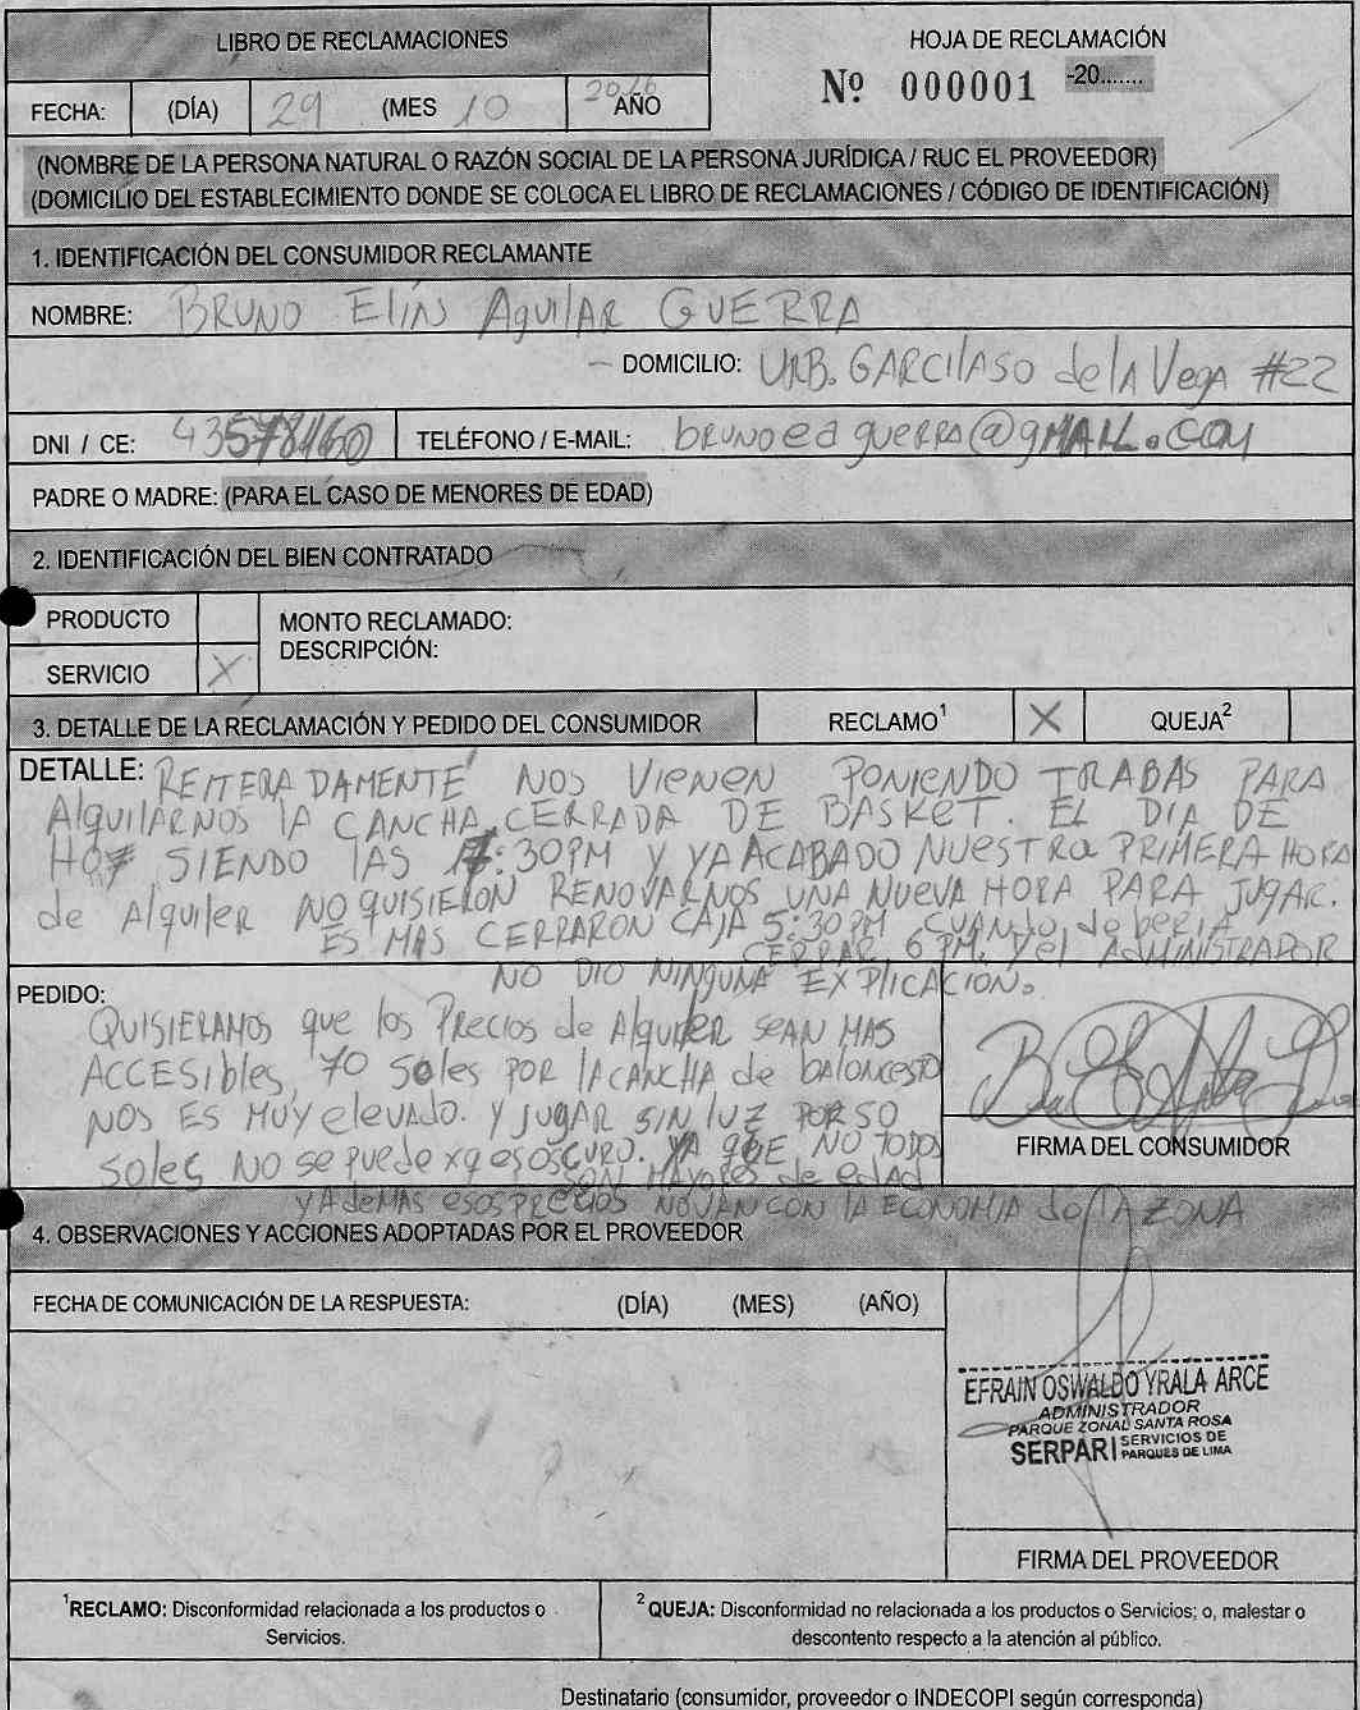 LIBRO DE RECLAMACIONES
HOJA DE RECLAMACIÓN
Nº 000001 -20.......
FECHA: (DÍA) 29 (MES 10 2016 AÑO
(NOMBRE DE LA PERSONA NATURAL O RAZÓN SOCIAL DE LA PERSONA JURÍDICA / RUC EL PROVEEDOR)
(DOMICILIO DEL ESTABLECIMIENTO DONDE SE COLOCA EL LIBRO DE RECLAMACIONES / CÓDIGO DE IDENTIFICACIÓN)
1. IDENTIFICACIÓN DEL CONSUMIDOR RECLAMANTE
NOMBRE: BRUNO ElíN AguilAR GUERRA
DOMICILIO: URB. GARCilASO de lA VegA #22
DNI / CE: 43578160 TELÉFONO / E-MAIL: brunoeaguerra@gMAIL.COM
PADRE O MADRE: (PARA EL CASO DE MENORES DE EDAD)
2. IDENTIFICACIÓN DEL BIEN CONTRATADO
PRODUCTO
MONTO RECLAMADO:
DESCRIPCIÓN:
SERVICIO X
3. DETALLE DE LA RECLAMACIÓN Y PEDIDO DEL CONSUMIDOR RECLAMO¹ X QUEJA²
DETALLE: REITERADAMENTE NOS VIENEN PONIENDO TRABAS PARA
AlquilARNOS lA CANCHA CERRADA DE BASKET. EL DIA DE
HOY SIENDO lAS 17:30PM Y YA ACABADO NUESTRa PRIMERA HORA
de Alquiler NO QUISIERON RENOVARNOS UNA NUEVA HORA PARA JUgAR.
ES MAS CERRARON CAJA 5:30 PM CUANdo deberiA
CERRAR 6 PM. y el AdMINISTRADOR
NO DIO NINgUNA EXPlICACION.
PEDIDO:
QUISIERAMOS que los Precios de Alquiler SEAN MAS
ACCESIbles, 70 Soles POR lA CANCHA de bAloncesto
NOS ES MUY elevado. Y JUgAR SIN lUZ POR 50
Soles NO se puede xq es OSCURO. YA qUE NO TODOS
SON MAYORES de edAd
y AdeMAS esos PRECIOS NO VAN CON lA ECONOMIA de lA ZONA
FIRMA DEL CONSUMIDOR
4. OBSERVACIONES Y ACCIONES ADOPTADAS POR EL PROVEEDOR
FECHA DE COMUNICACIÓN DE LA RESPUESTA: (DÍA) (MES) (AÑO)
EFRAIN OSWALDO YRALA ARCE
ADMINISTRADOR
PARQUE ZONAL SANTA ROSA
SERPAR | SERVICIOS DE
PARQUES DE LIMA
FIRMA DEL PROVEEDOR
¹RECLAMO: Disconformidad relacionada a los productos o
Servicios.
² QUEJA: Disconformidad no relacionada a los productos o Servicios; o, malestar o
descontento respecto a la atención al público.
Destinatario (consumidor, proveedor o INDECOPI según corresponda)